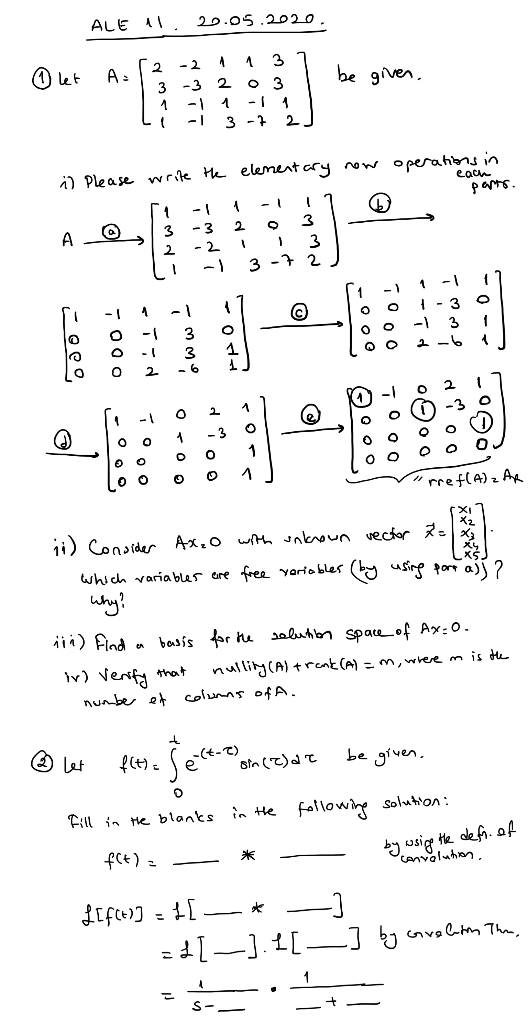 ALE 11. 20.05.2020.
① Let A = [2 -2 1 1 3
3 -3 2 0 3
1 -1 1 -1 1
1 -1 3 -7 2] be given.
i) Please write the elementary row operations in each parts.
A ⓐ→ [1 -1 1 -1 1
3 -3 2 0 3
2 -2 1 1 3
1 -1 3 -7 2] ⓑ→
[1 -1 1 -1 1
0 0 -1 3 0
0 0 -1 3 1
0 0 2 -6 1] ⓒ→ [1 -1 1 -1 1
0 0 1 -3 0
0 0 -1 3 1
0 0 2 -6 1]
ⓓ→ [1 -1 0 2 1
0 0 1 -3 0
0 0 0 0 1
0 0 0 0 1] ⓔ→ [① -1 0 2 1
0 0 ① -3 0
0 0 0 0 ①
0 0 0 0 0]
"rref(A) = AR
ii) Consider Ax=0 with unknown vector x⃗ = [x1
x2
x3
x4
x5].
Which variables are free variables (by using part a))?
Why?
iii) Find a basis for the solution space of Ax=0.
iv) Verify that nullity(A) + rank(A) = m, where m is the
number of columns of A.
② Let f(t) = ∫₀ᵗ e^-(t-τ) sin(τ)dτ be given.
Fill in the blanks in the following solution:
f(t) = __ * __ by using the defn. of convolution.
ℒ[f(t)] = ℒ[__ * __]
= ℒ[__] . ℒ[__] by convolution Thm.
= 1/(s-__) . 1/(__+__)